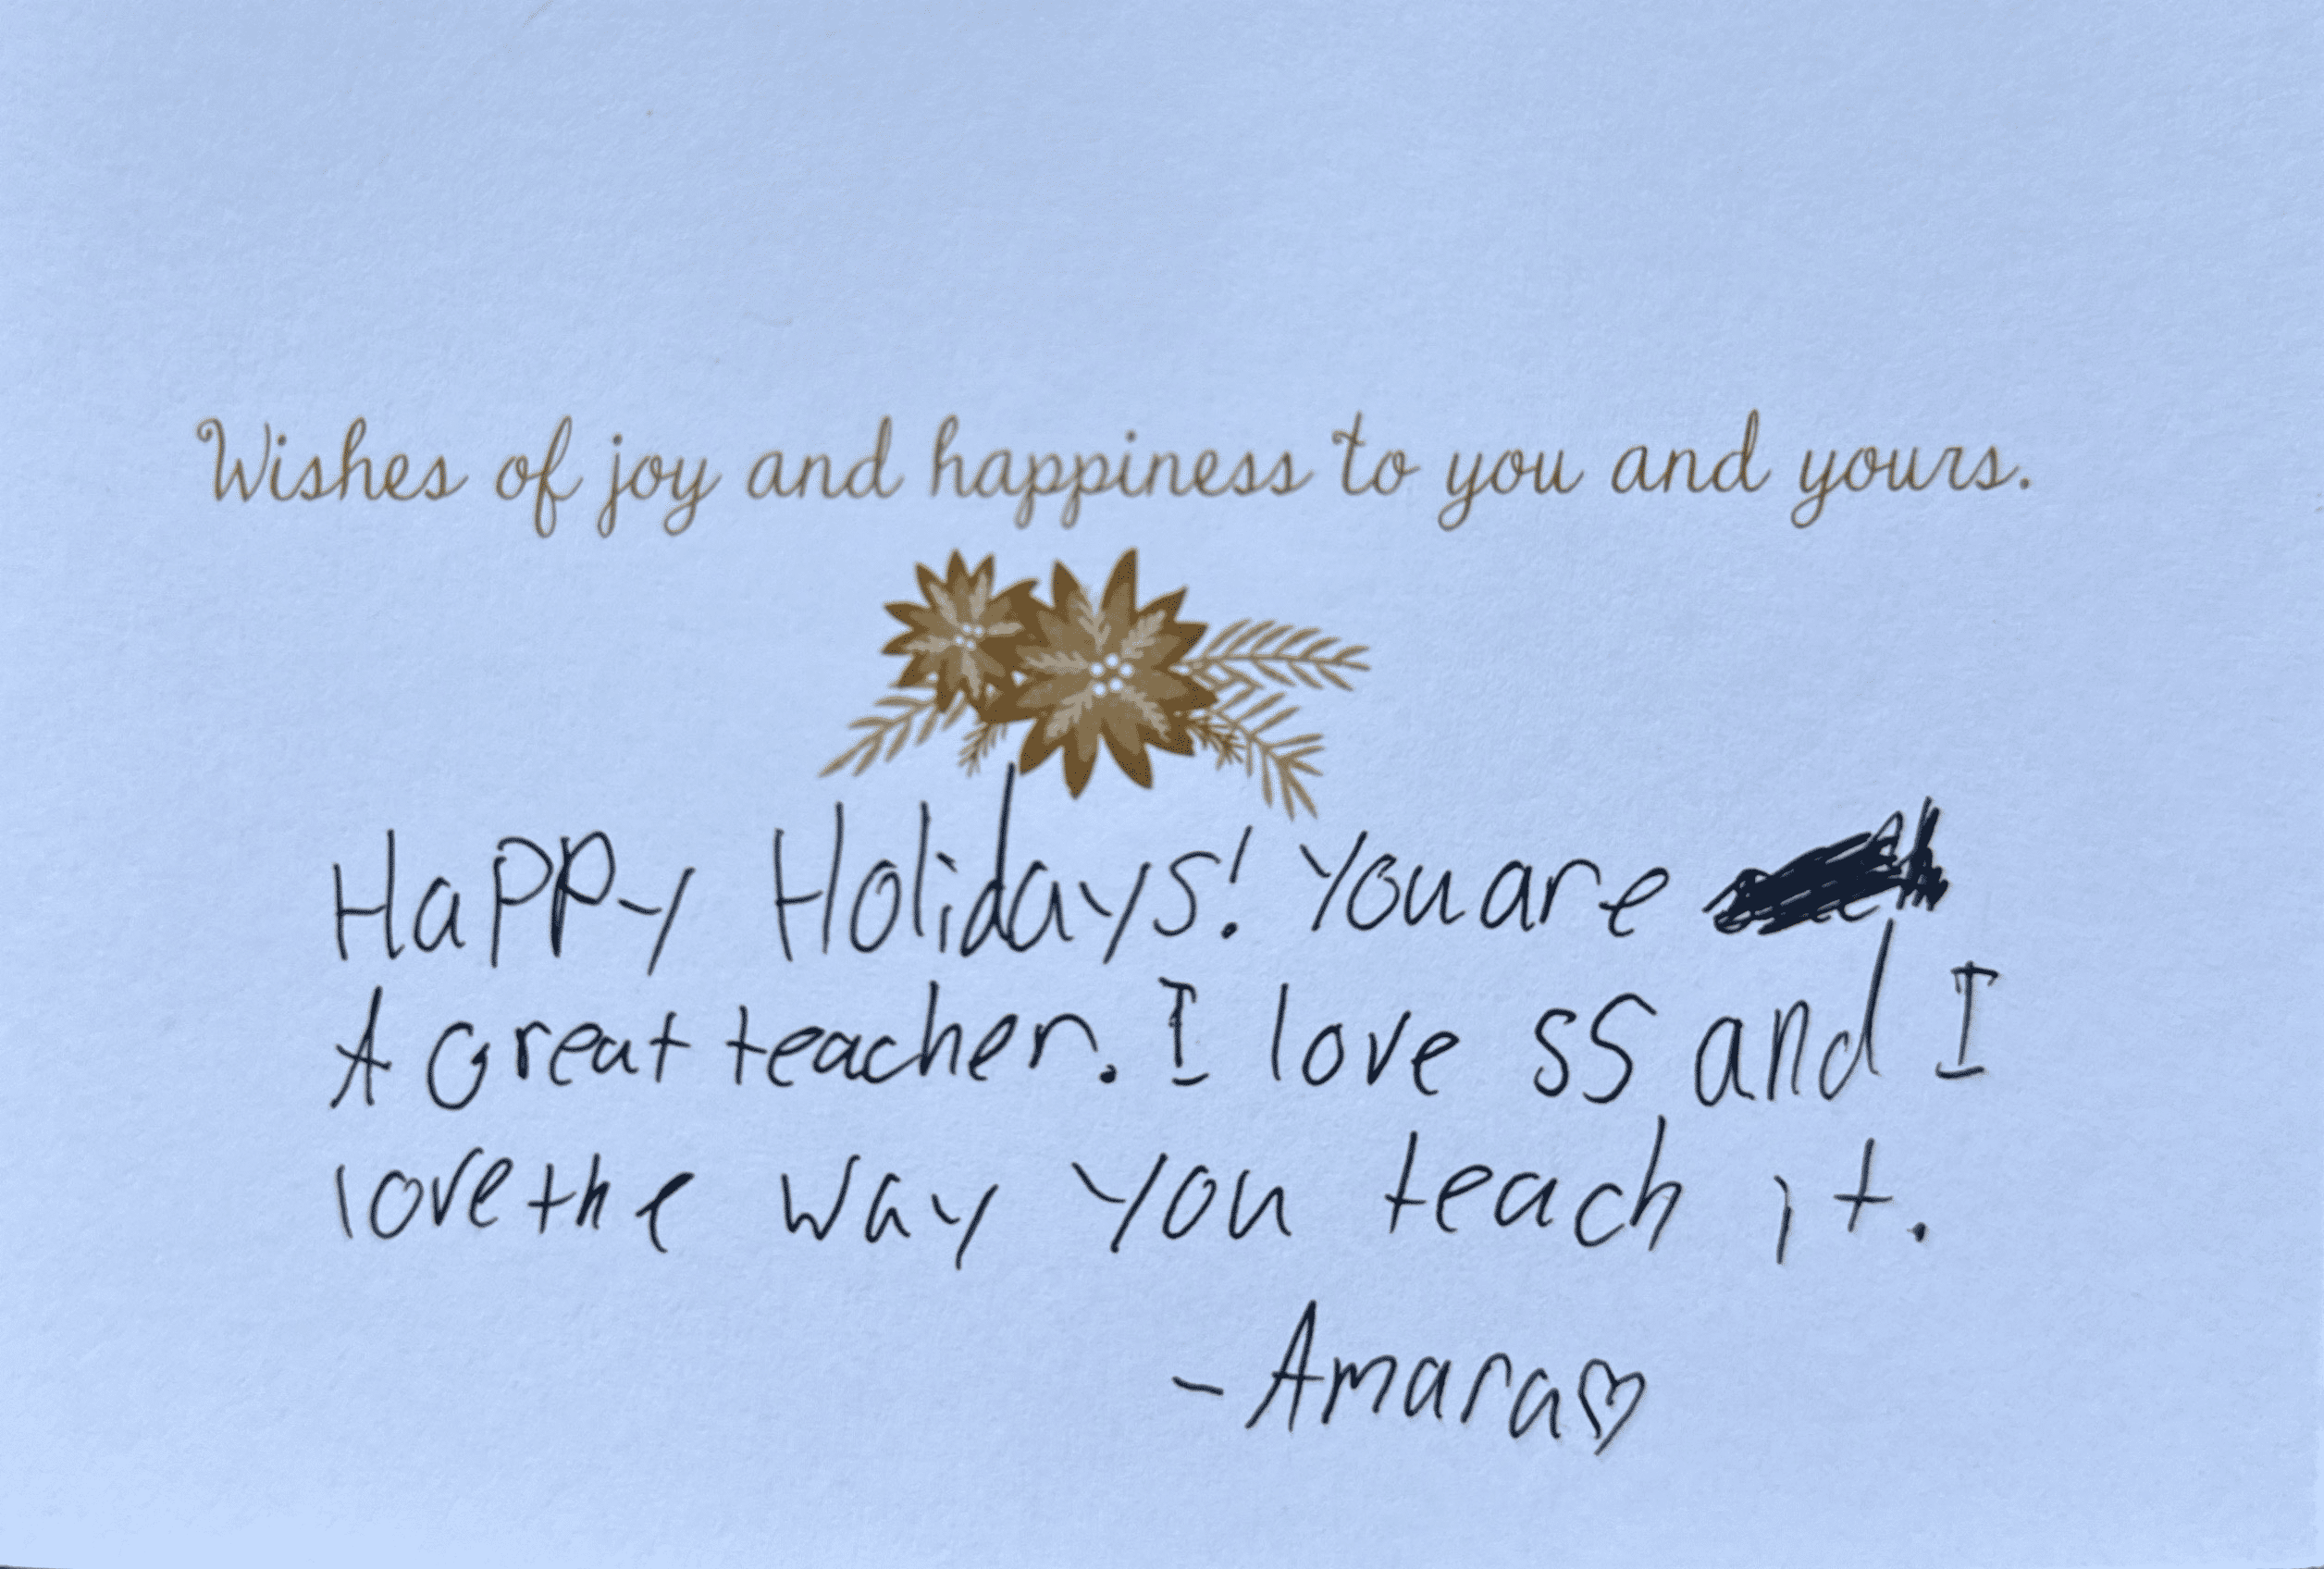 Wishes of joy and happiness to you and yours.
HaPPy Holidays! You are
A Great teacher. I love SS and I
love the way you teach it.
- Amara♡